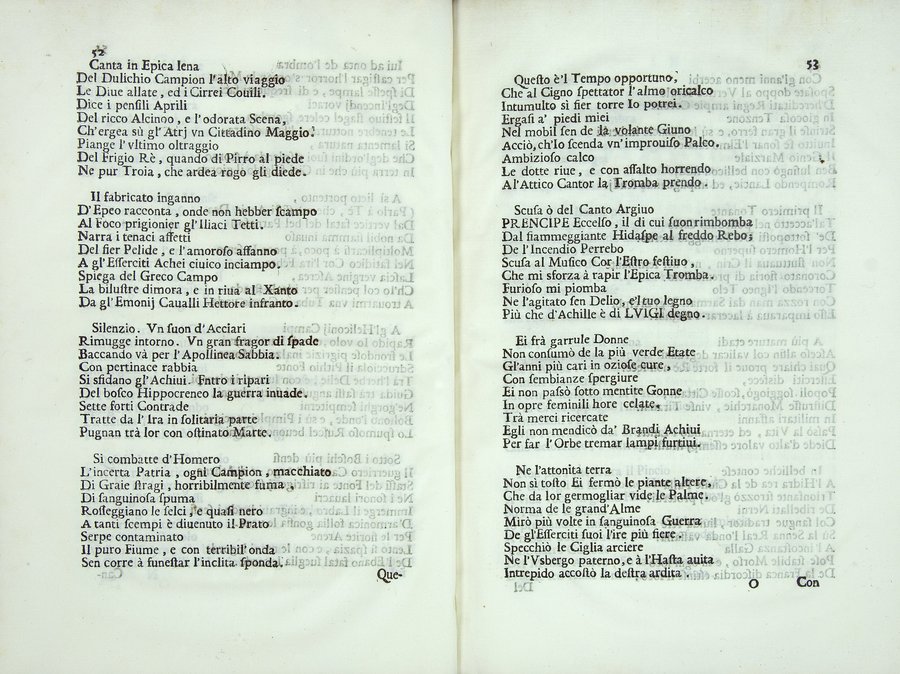 52
Canta in Epica lena
Del Dulichio Campion l'alto viaggio
Le Diue allate, ed i Cirrei Couili.
Dice i pensili Aprili
Del ricco Alcinoo, e l'odorata Scena,
Ch'ergea sù gl'Atrj vn Cittadino Maggio.
Piange l'vltimo oltraggio
Del Frigio Rè, quando di Pirro al piede
Ne pur Troia, che ardea rogo gli diede.
Il fabricato inganno
D'Epeo racconta, onde non hebber scampo
Al foco prigionier gl'Iliaci Tetti.
Narra i tenaci affetti
Del fier Pelide, e l'amoroso affanno
A gl'Esserciti Achei ciuico inciampo.
Spiega del Greco Campo
La bilustre dimora, e in riua al Xanto
Da gl'Emonij Caualli Hettore infranto.
Silenzio. Vn suon d'Acciari
Rimugge intorno. Vn gran fragor di spade
Baccando và per l'Apollinea Sabbia.
Con pertinace rabbia
Si sfidano gl'Achiui. Entro i ripari
Del bosco Hippocreneo la guerra inuade.
Sette forti Contrade
Tratte da l'Ira in solitaria parte
Pugnan trà lor con ostinato Marte.
Si combatte d'Homero
L'incerta Patria, ogni Campion, macchiato
Di Graie stragi, horribilmente fuma,
Di sanguinosa spuma
Rosseggiano le selci, e quasi nero
A tanti scempi è diuenuto il Prato
Serpe contaminato
Il puro Fiume, e con terribil'onda
Sen corre à funestar l'inclita sponda.
Que-
53
Questo è'l Tempo opportuno,
Che al Cigno spettator l'almo oricalco
Intumulto si fier torre Io potrei.
Ergasi a' piedi miei
Nel mobil sen de la volante Giuno
Acciò, ch'Io scenda vn'improuiso Palco.
Ambizioso calco
Le dotte riue, e con assalto horrendo
Al'Attico Cantor la Tromba prendo.
Scusa ò del Canto Argiuo
PRENCIPE Eccelso, il di cui suon rimbomba
Dal fiammeggiante Hidaspe al freddo Rebo,
De l'Incendio Perrebo
Scusa al Musico Cor l'Estro festiuo,
Che mi sforza à rapir l'Epica Tromba.
Furioso mi piomba
Ne l'agitato sen Delio, e'l tuo legno
Più che d'Achille è di LVIGI degno.
Ei frà garrule Donne
Non consumò de la più verde Etate
Gl'anni più cari in oziose cure,
Con sembianze spergiure
Ei non passò sotto mentite Gonne
In opre feminili hore celate,
Trà merci ricercate
Egli non mendicò da' Brandi Achiui
Per far l'Orbe tremar lampi furtiui.
Ne l'attonita terra
Non sì tosto Ei fermò le piante altere,
Che da lor germogliar vide le Palme.
Norma de le grand'Alme
Mirò più volte in sanguinosa Guerra
De gl'Esserciti suoi l'ire più fiere.
Specchiò le Ciglia arciere
Ne l'Vsbergo paterno, e à l'Hasta auita
Intrepido accostò la destra ardita.
O Con